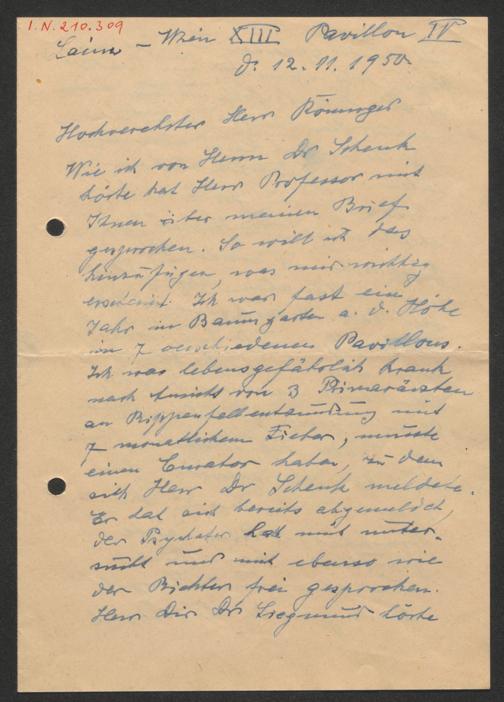 I.N. 210.309
Lainz - Wien XIII Pavillon IV
d. 12.11.1950
Hochverehrter Herr
Wie ich von Herrn Dr Schenk
hörte hat Herr Professor mit
Ihnen über meinen Brief
gesprochen. So will ich das
hinzufügen, was mir wichtig
erscheint. Ich war fast ein
Jahr in Baumgarten a. d. Höhe
in 7 verschiedenen Pavillons.
Ich war lebensgefährlich krank
nach Ansicht von 3 Primarärzten
an Rippenfellentzündung mit
7 monatlichem Fieber, musste
einen Curator haben, zu dem
sich Herr Dr Schenk meldete.
Er hat sich bereits abgemeldet,
der Psychater hat mich unter-
sucht und mich ebenso wie
der Richter frei gesprochen.
Herr Dir Dr Siegmund hörte